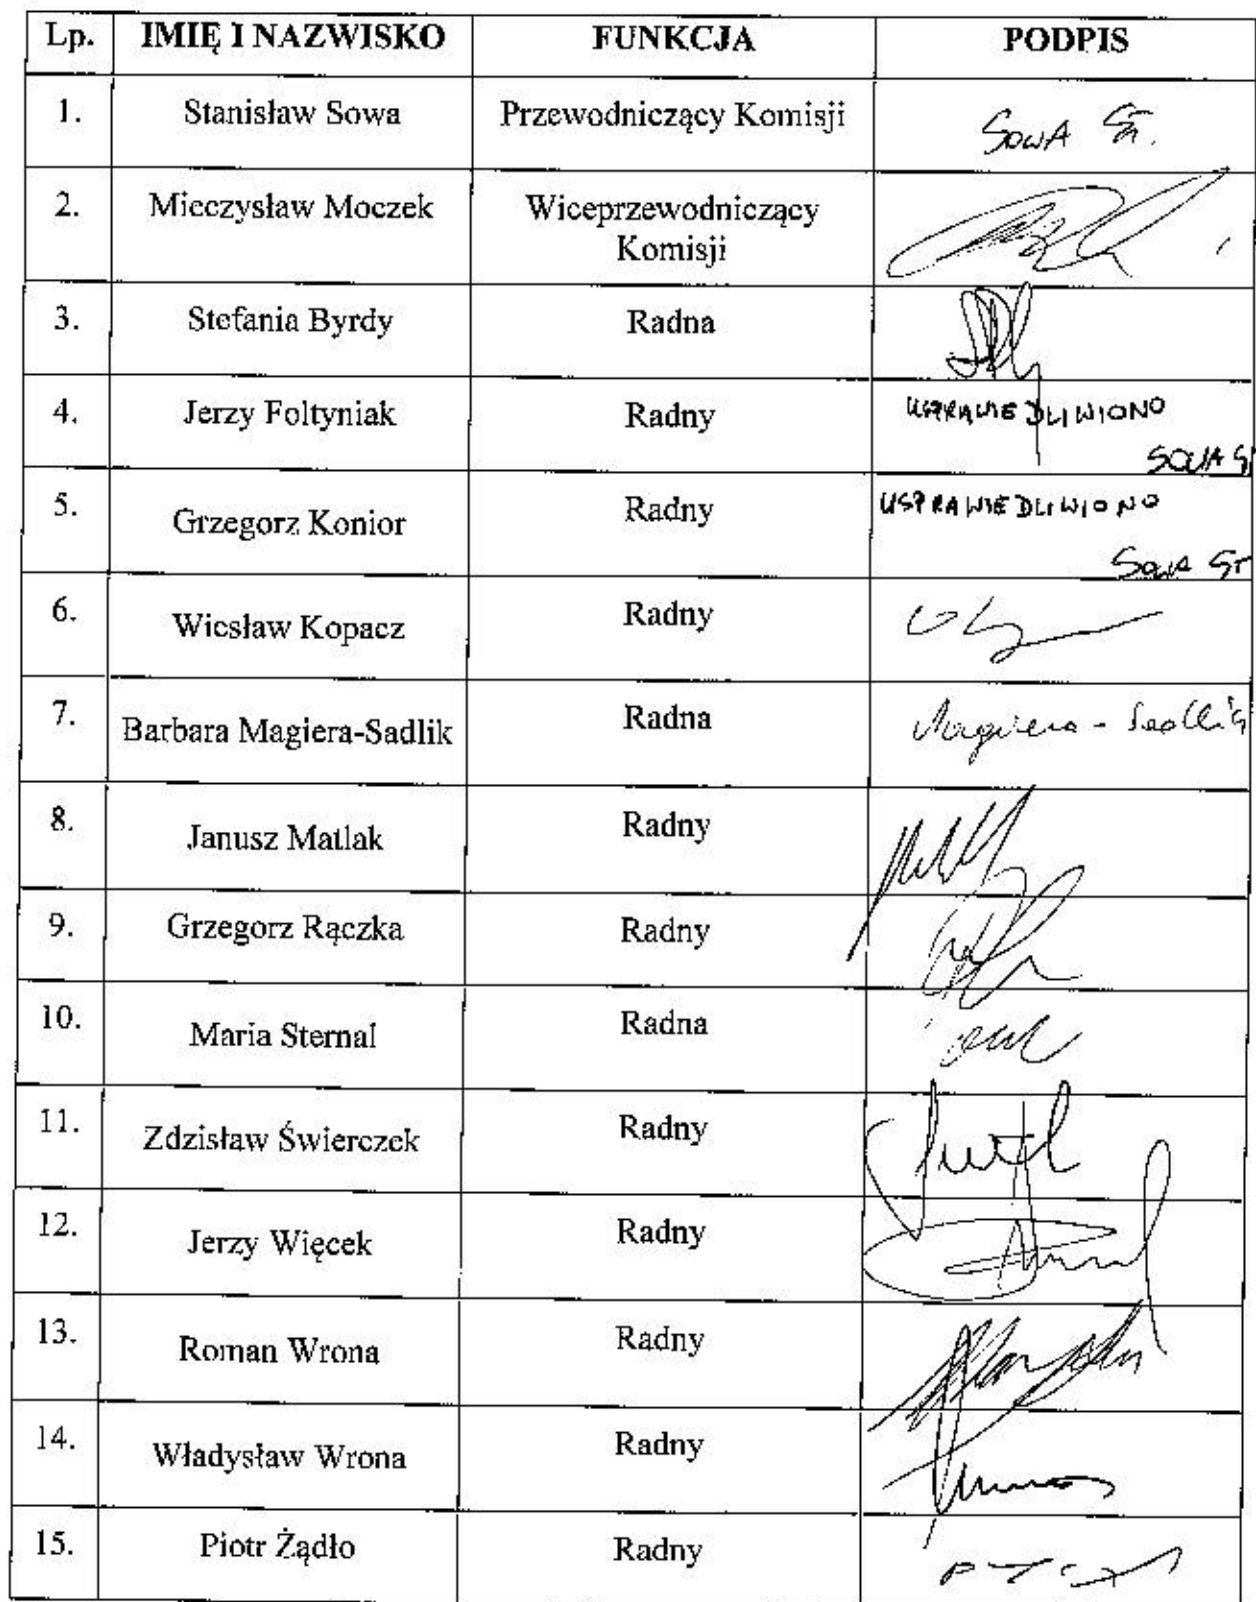 Lp. IMIĘ I NAZWISKO FUNKCJA PODPIS
1. Stanisław Sowa Przewodniczący Komisji SOWA St.
2. Mieczysław Moczek Wiceprzewodniczący
Komisji
3. Stefania Byrdy Radna
4. Jerzy Foltyniak Radny USPRAWIEDLIWIONO
SOWA St
5. Grzegorz Konior Radny USPRAWIEDLIWIONO
Sowa St
6. Wiesław Kopacz Radny
7. Barbara Magiera-Sadlik Radna Magiera-Sadlik
8. Janusz Matlak Radny
9. Grzegorz Rączka Radny
10. Maria Sternal Radna
11. Zdzisław Świerczek Radny
12. Jerzy Więcek Radny
13. Roman Wrona Radny
14. Władysław Wrona Radny
15. Piotr Żądło Radny